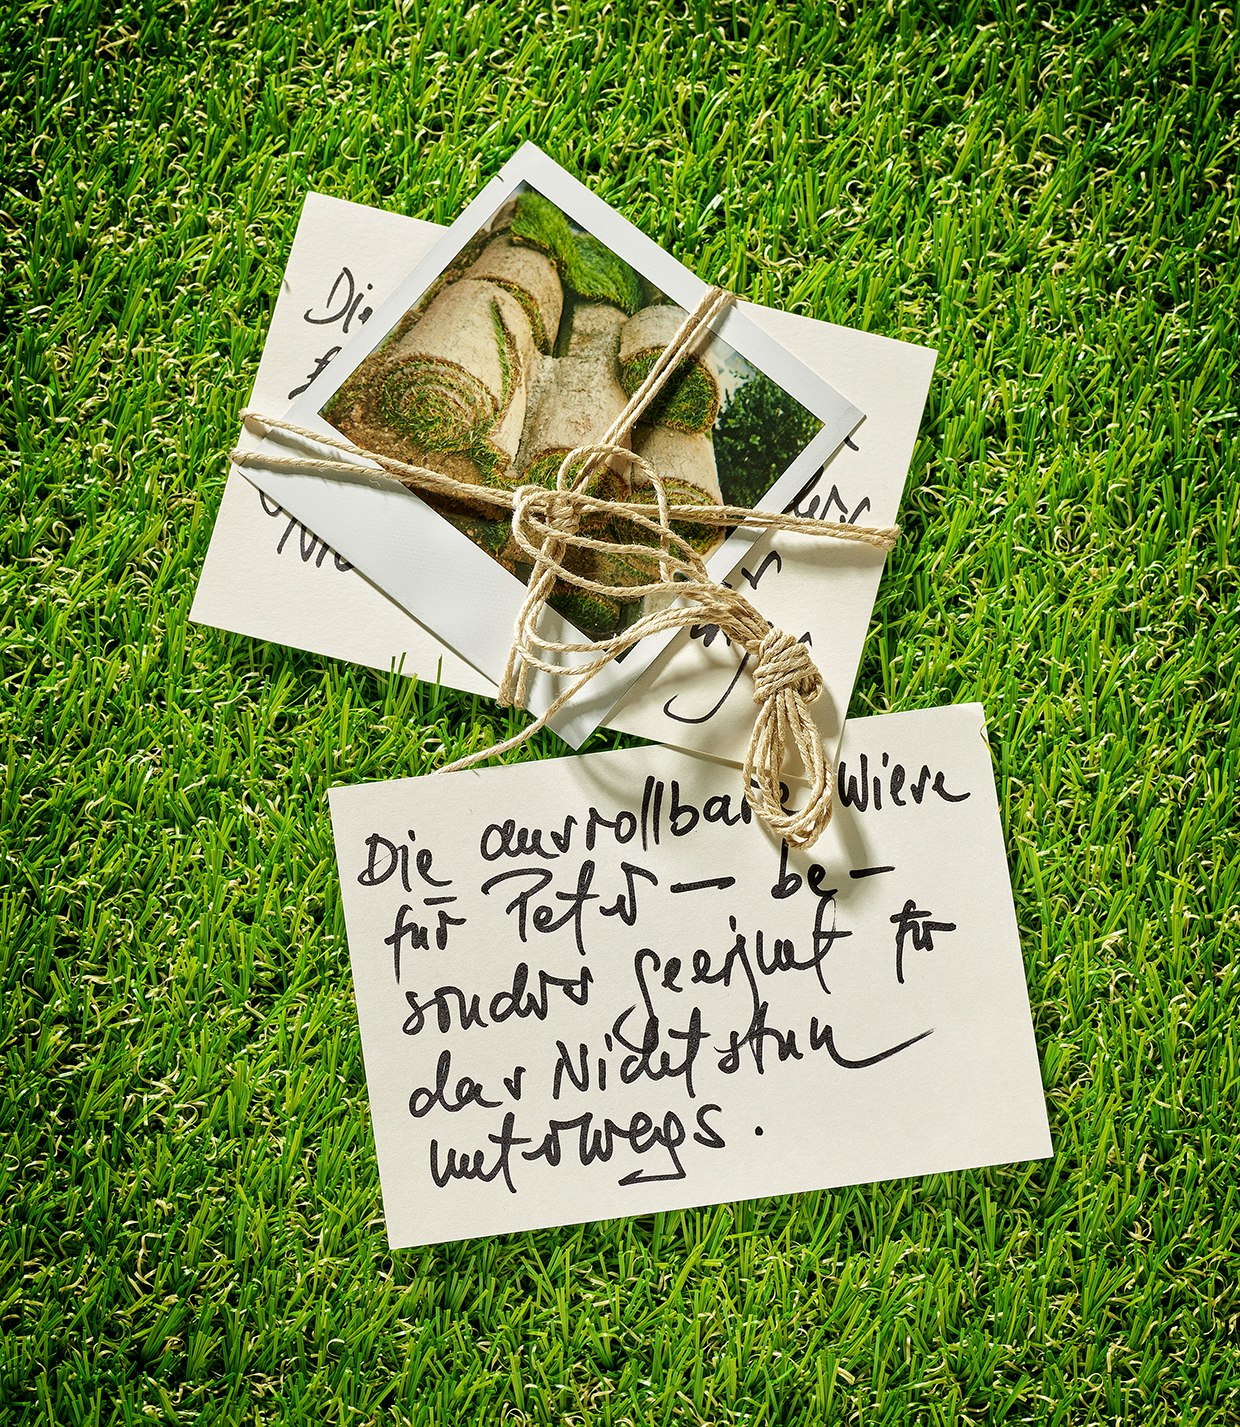 Die
für
Die ausrollbare Wiese
für Peter — be-
sonders geeignet für
das Nichtstun
unterwegs.